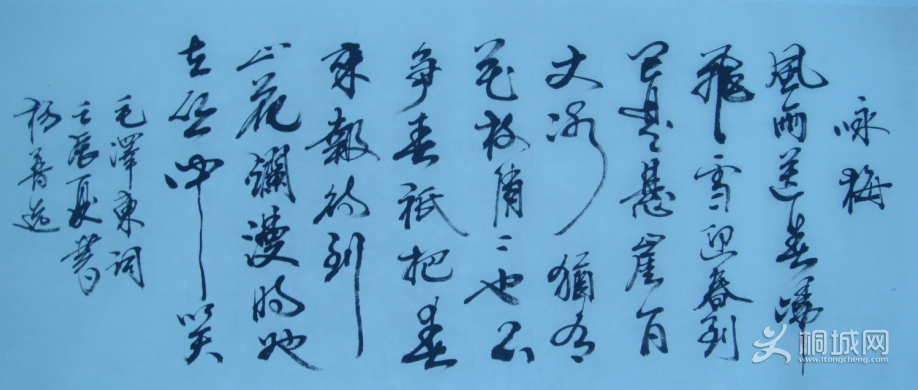 咏梅
風雨送春歸
飛雪迎春到
已是懸崖百
丈冰猶有
花枝俏々也不
争春祇把春
来報待到
山花瀾漫時她
在丛中笑
毛澤東詞
壬辰夏書
桐城网
www.itongcheng.com